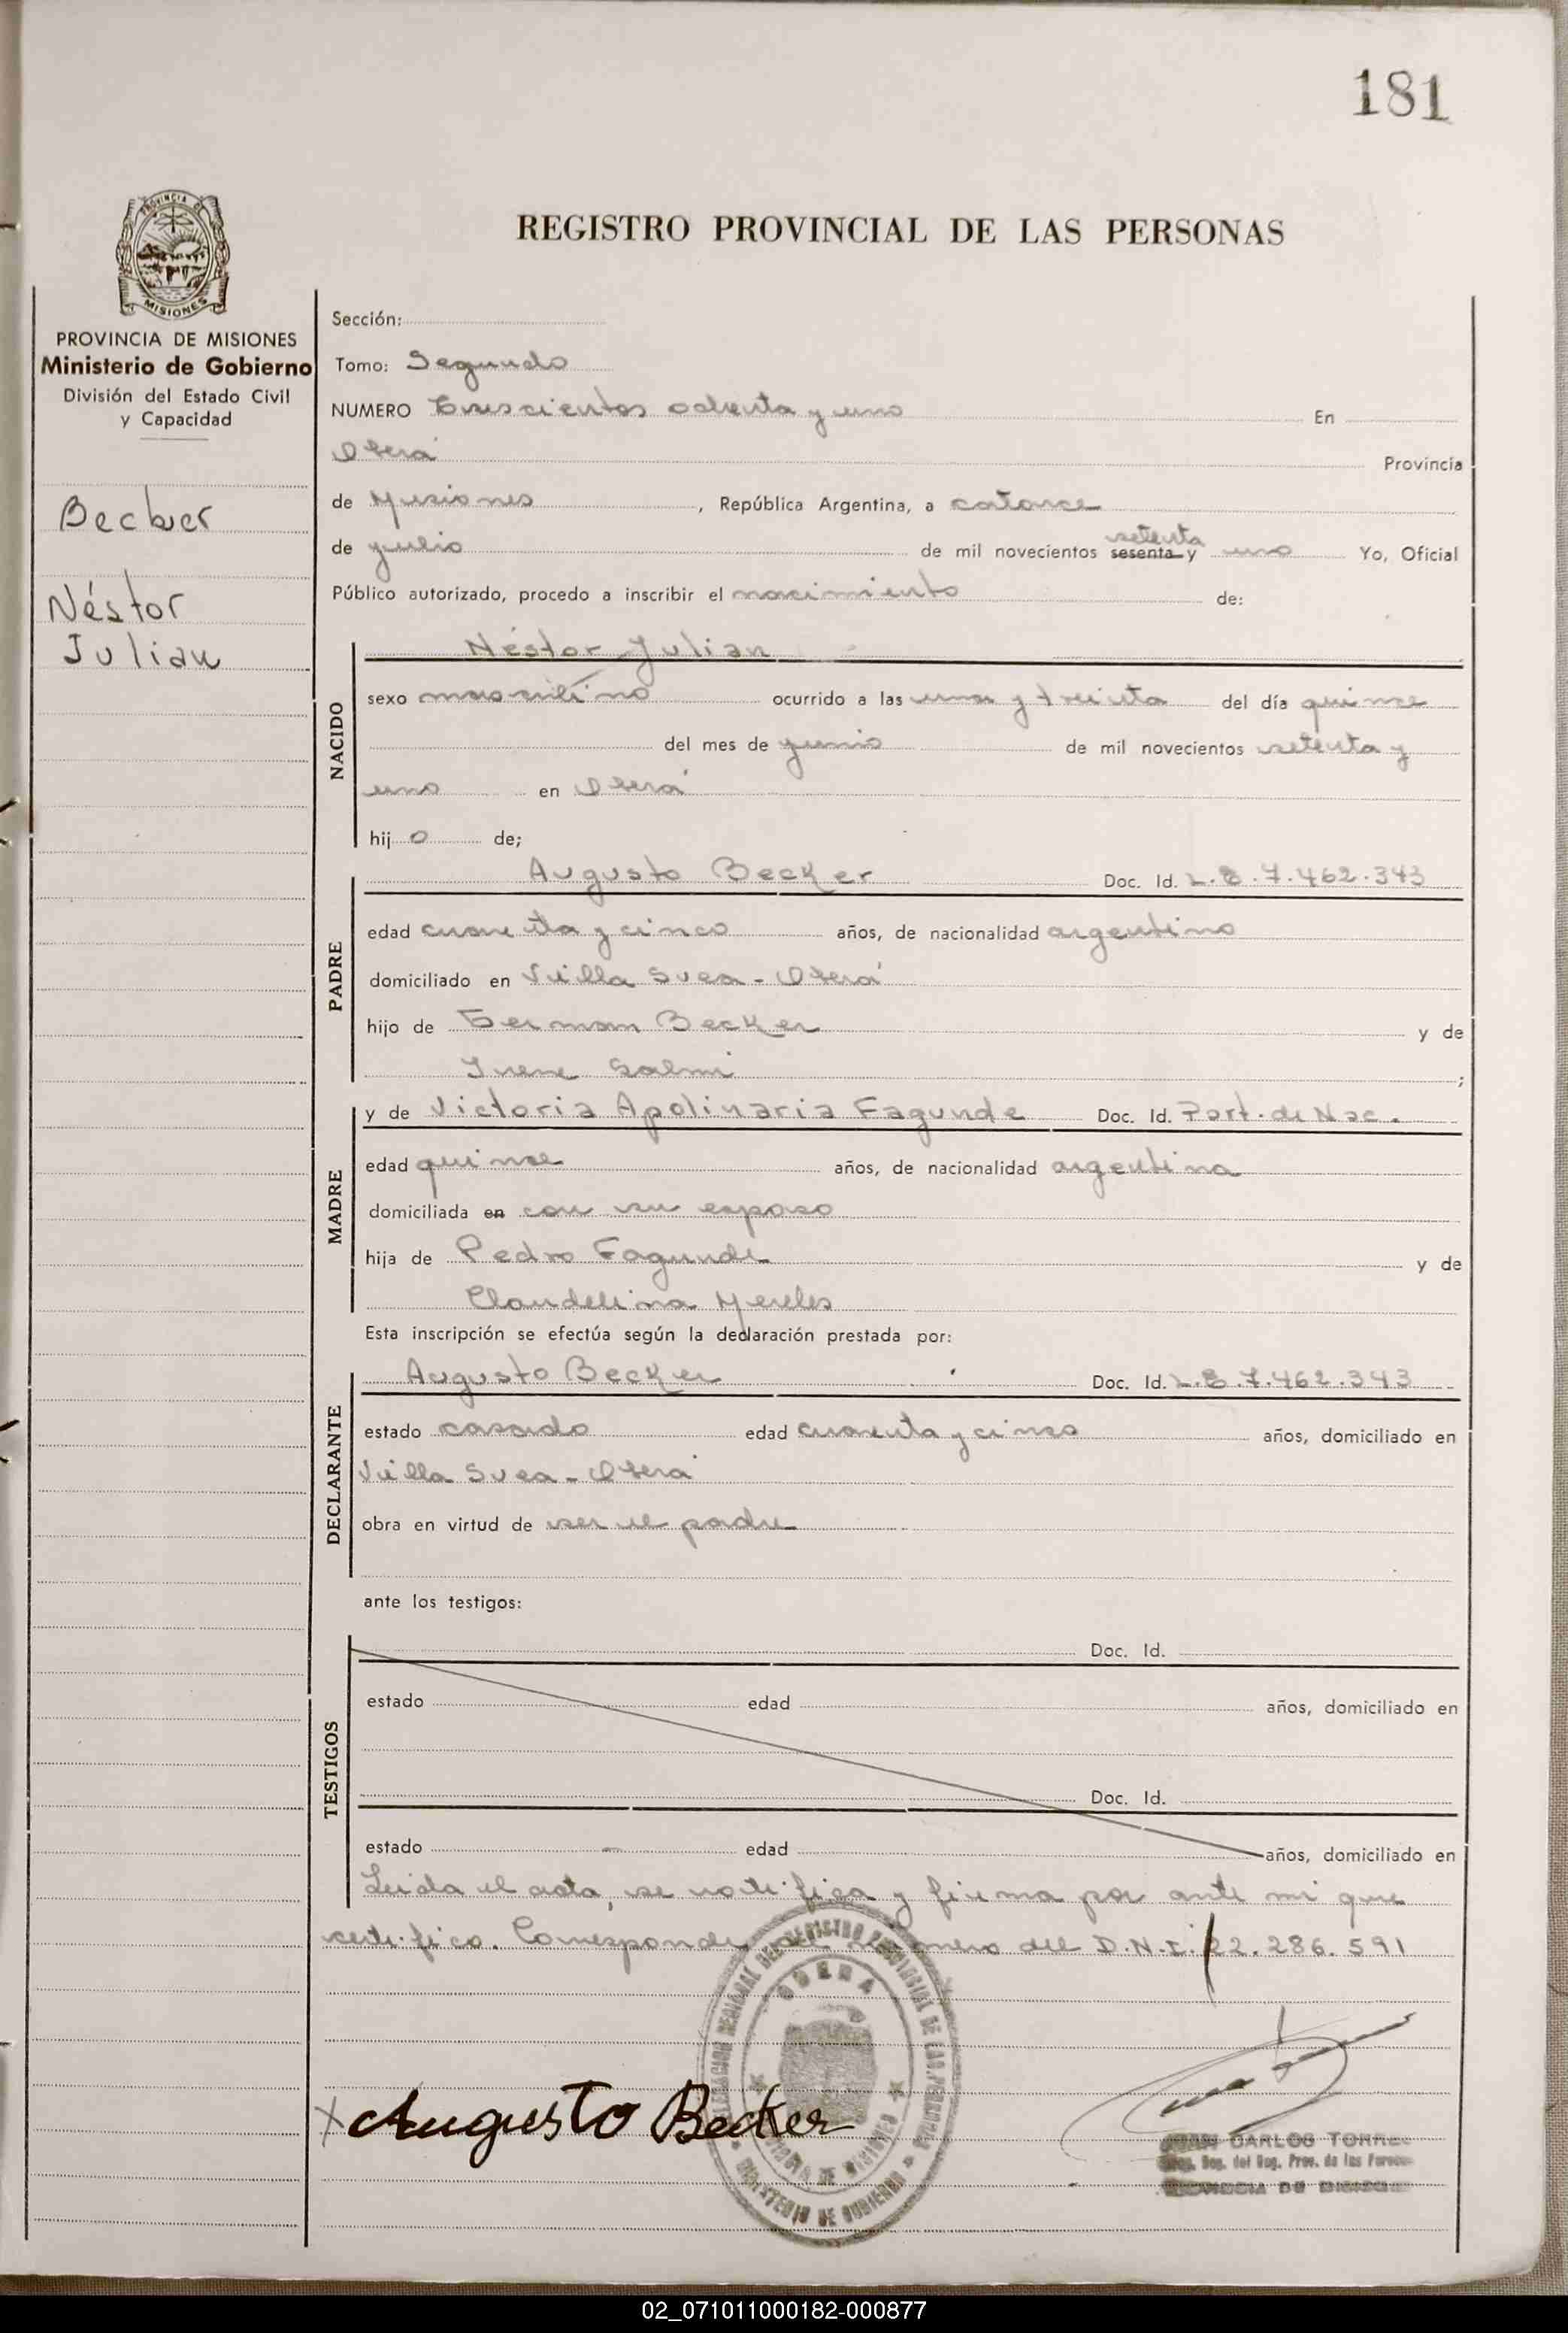 181
PROVINCIA DE
MISIONES
REGISTRO PROVINCIAL DE LAS PERSONAS
PROVINCIA DE MISIONES
Ministerio de Gobierno
División del Estado Civil
y Capacidad
Becker
Néstor
Julian
Sección:
Tomo: Segundo
NUMERO Trescientos ochenta y uno En
Oberá Provincia
de Misiones, República Argentina, a catorce
setenta
de julio de mil novecientos sesenta y uno Yo, Oficial
Público autorizado, procedo a inscribir el nacimiento de:
NACIDO
Néstor Julian
sexo masculino ocurrido a las una y treinta del día quince
del mes de junio de mil novecientos setenta y
uno en Oberá
hijo de;
PADRE
Augusto Becker Doc. Id. L.E.7.462.343
edad cuarenta y cinco años, de nacionalidad argentino
domiciliado en Villa Svea - Oberá
hijo de German Becker y de
Irene Salmi;
MADRE
y de Victoria Apolinaria Fagunde Doc. Id. Part. de Nac.
edad quince años, de nacionalidad argentina
domiciliada en con su esposo
hija de Pedro Fagunde y de
Claudelina Mereles
Esta inscripción se efectúa según la declaración prestada por:
DECLARANTE
Augusto Becker Doc. Id. L.E.7.462.343
estado casado edad cuarenta y cinco años, domiciliado en
Villa Svea - Oberá
obra en virtud de ser el padre
ante los testigos:
TESTIGOS
Doc. Id.
estado edad años, domiciliado en
Doc. Id.
estado edad años, domiciliado en
Leida el acta, se ratifica y firma por ante mi que
certifico. Corresponde el número del D.N.I. 22.286.591
OBERA
MINISTERIO DE GOBIERNO
PROVINCIA DE MISIONES
Augusto Becker
JUAN CARLOS TORRES
PROVINCIA DE MISIONES
02_071011000182-000877